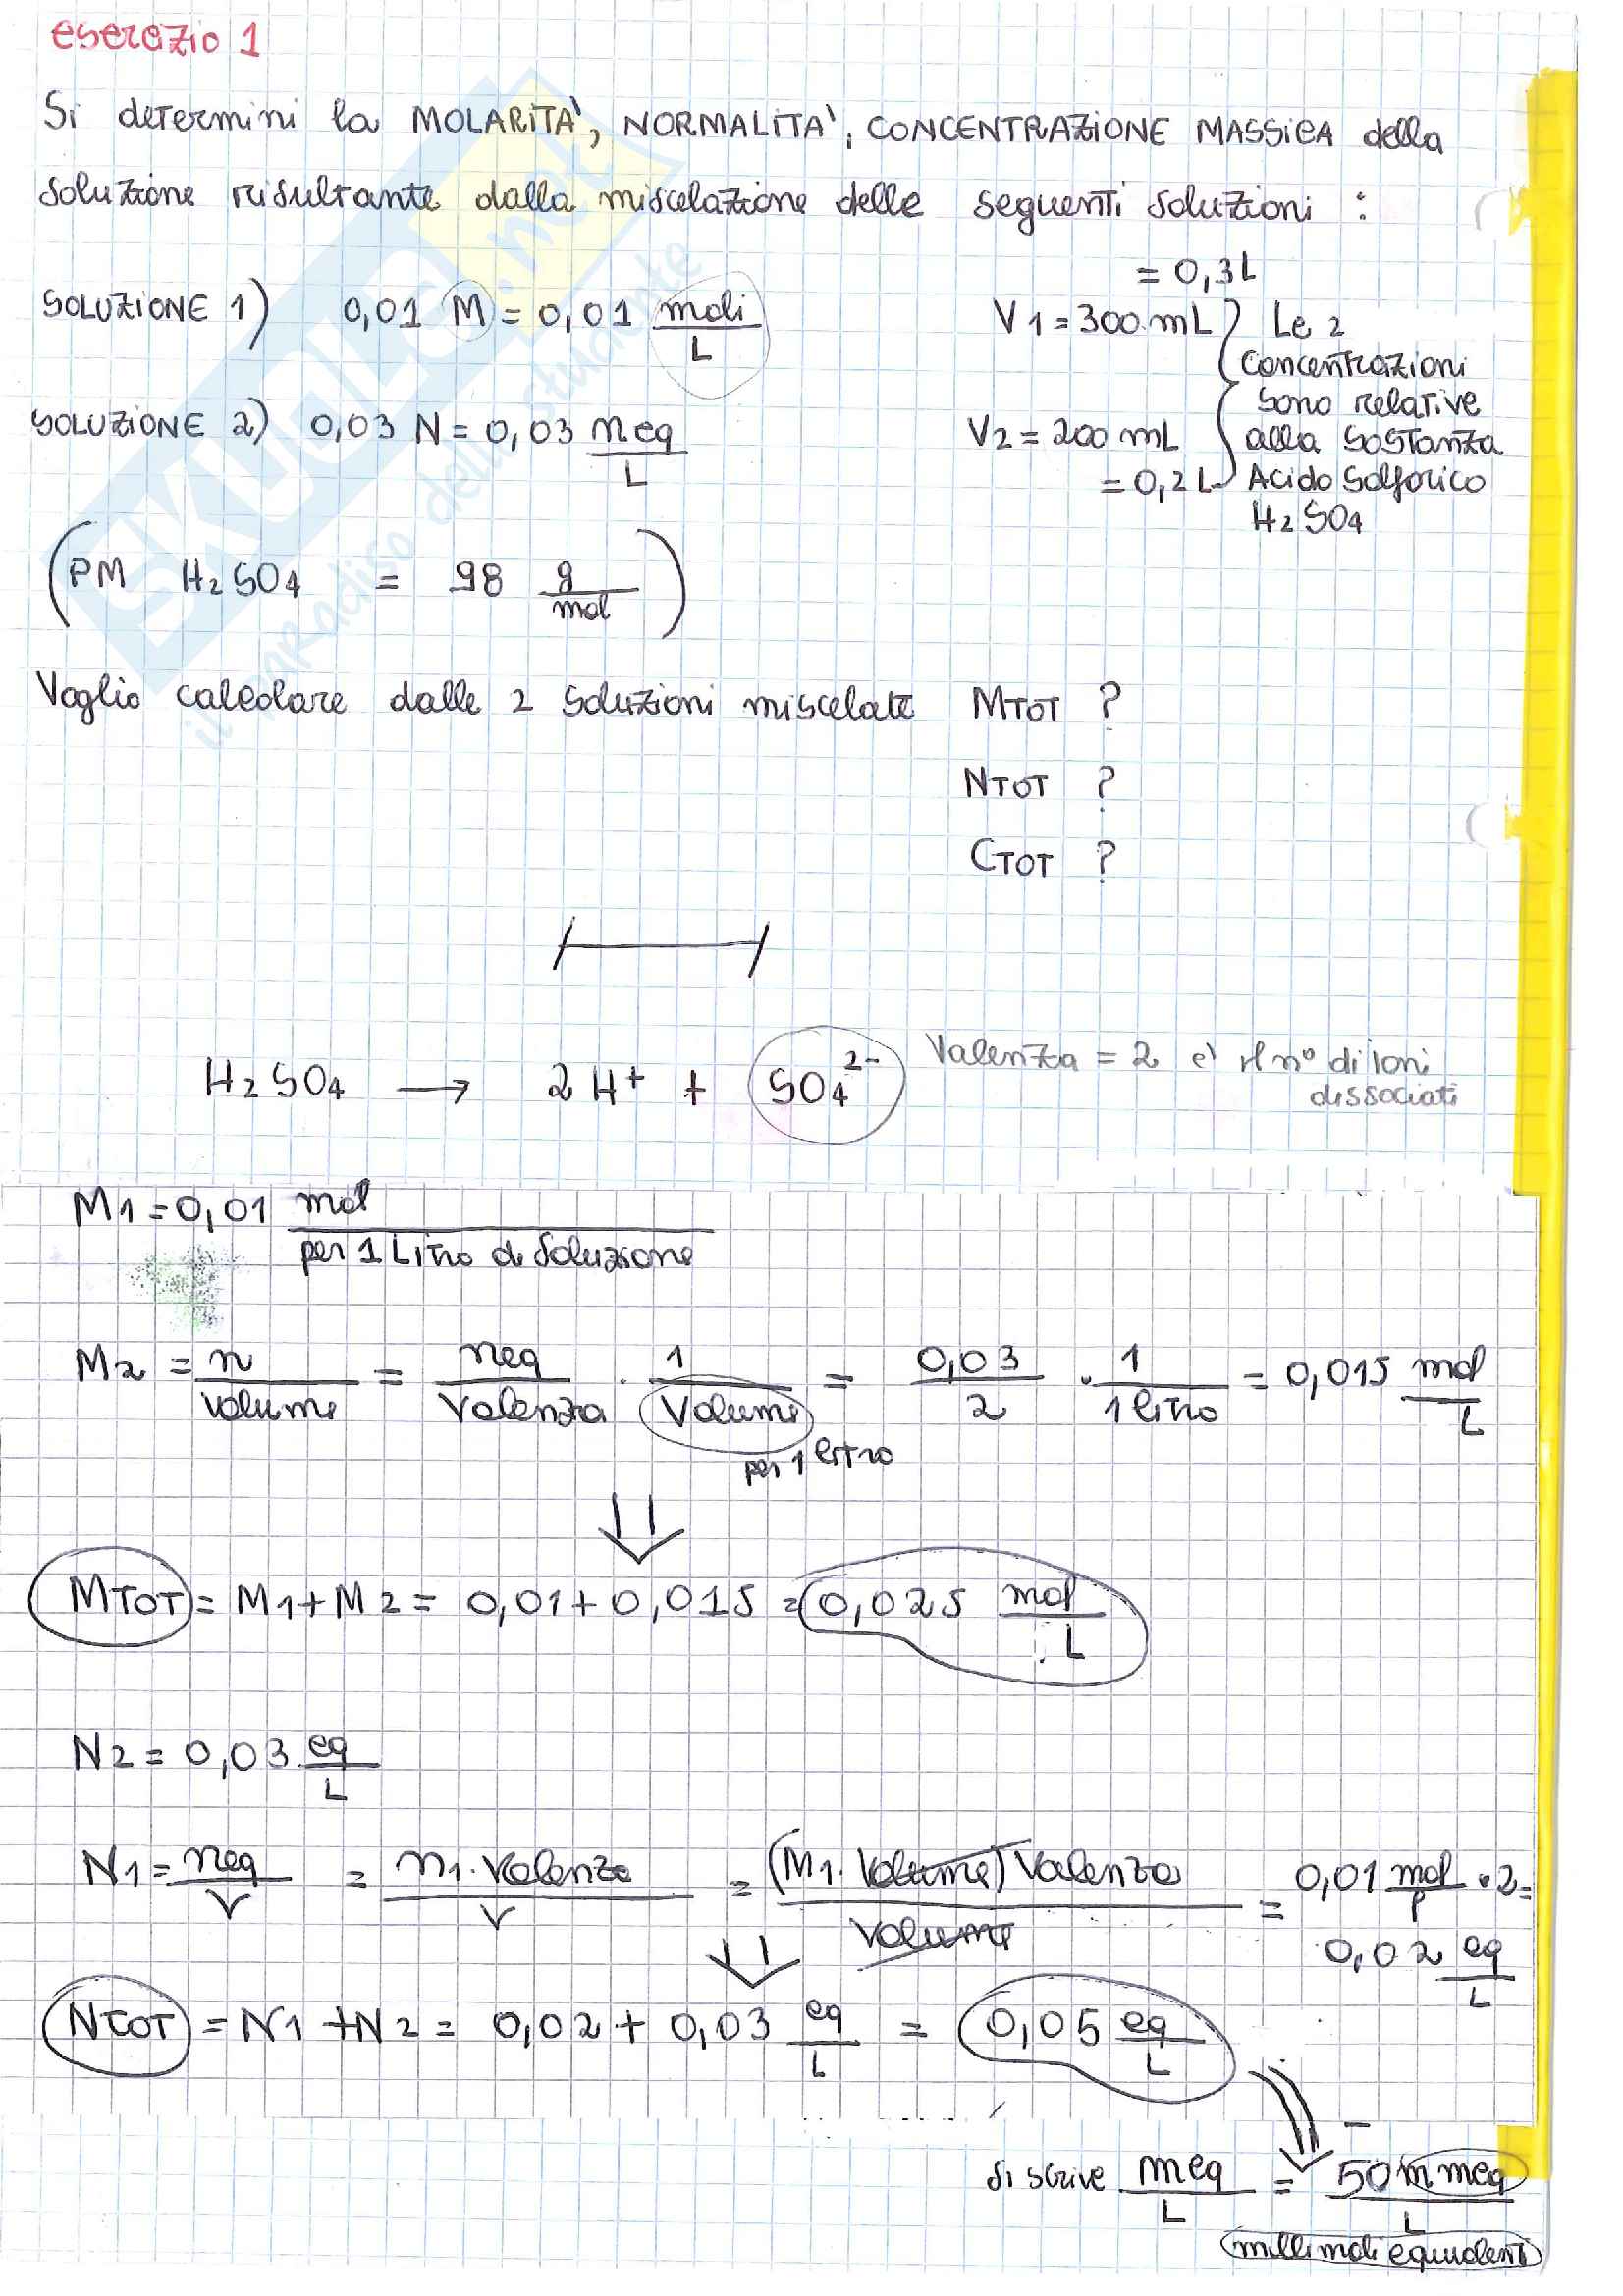 esercizio 1
Si determini la MOLARITA', NORMALITA', CONCENTRAZIONE MASSICA della
soluzione risultante dalla miscelazione delle seguenti soluzioni :
= 0,3L
SOLUZIONE 1) 0,01 M = 0,01 moli/L V1 = 300 mL } Le 2
concentrazioni
sono relative
SOLUZIONE 2) 0,03 N = 0,03 neq/L V2 = 200 mL alla sostanza
= 0,2 L Acido Solforico
H2SO4
(PM H2SO4 = 98 g/mol)
Voglio calcolare dalle 2 soluzioni miscelate MTOT ?
NTOT ?
CTOT ?
H2SO4 → 2H+ + SO4 2- Valenza = 2 è il n° di ioni
dissociati
M1 = 0,01 mol/per 1 Litro di Soluzione
M2 = n/volume = neq/Valenza · 1/Volume = 0,03/2 · 1/1 litro = 0,015 mol/L
per 1 litro
MTOT = M1 + M2 = 0,01 + 0,015 = 0,025 mol/L
N2 = 0,03 eq/L
N1 = neq/V = n1 · Valenza/V = (M1 · Volume) Valenza/Volume = 0,01 mol/l · 2 =
0,02 eq/L
NTOT = N1 + N2 = 0,02 + 0,03 eq/L = 0,05 eq/L
si scrive meq/L = 50 m meq/L
millimoli equivalenti
SKUOLA.net
il paradiso dello studente